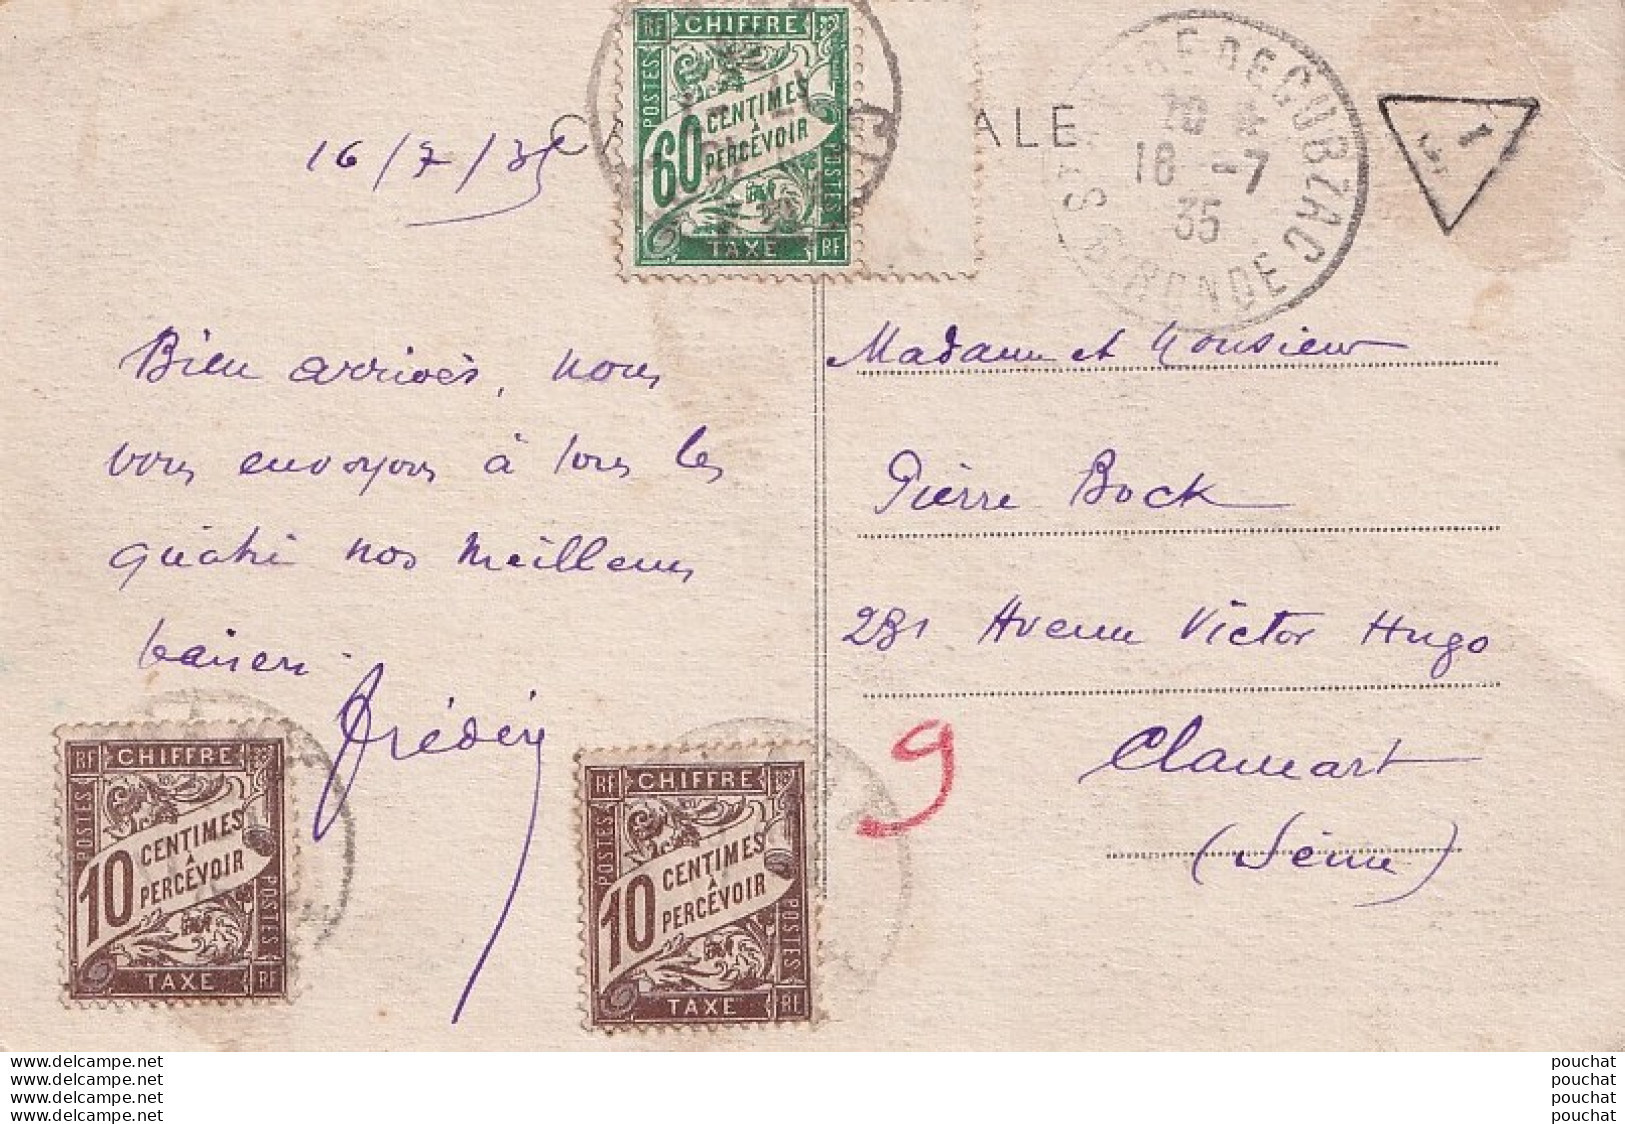 RF CHIFFRE
POSTES
60 CENTIMES
A
PERCEVOIR
POSTES
TAXE RF
CA
ALE
ST ANDRE DE CUBZAC
GIRONDE
18 -7
35
T
16/7/35
Bien arrivés, nous
vous envoyons à tous les
quatre nos meilleurs
baisers.
Frédéric
Madame et Monsieur
Pierre Bock
231 Avenue Victor Hugo
Clamart
(Seine)
9
RF CHIFFRE
POSTES
10 CENTIMES
A
PERCEVOIR
POSTES
TAXE RF
RF CHIFFRE
POSTES
10 CENTIMES
A
PERCEVOIR
POSTES
TAXE RF
www.delcampe.net
www.delcampe.net
www.delcampe.net
www.delcampe.net
pouchat
pouchat
pouchat
pouchat